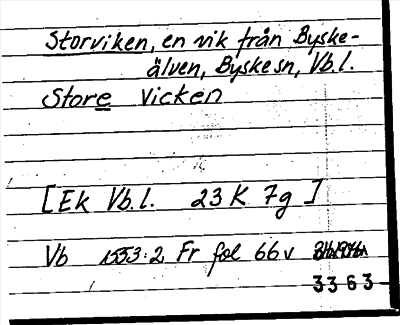 Storviken, en vik från Byske-
älven, Byske sn, Vb.l.
Store Vicken
[Ek Vb.l. 23 K 7g ]
Vb 1553:2 Fr fol 66v
3363